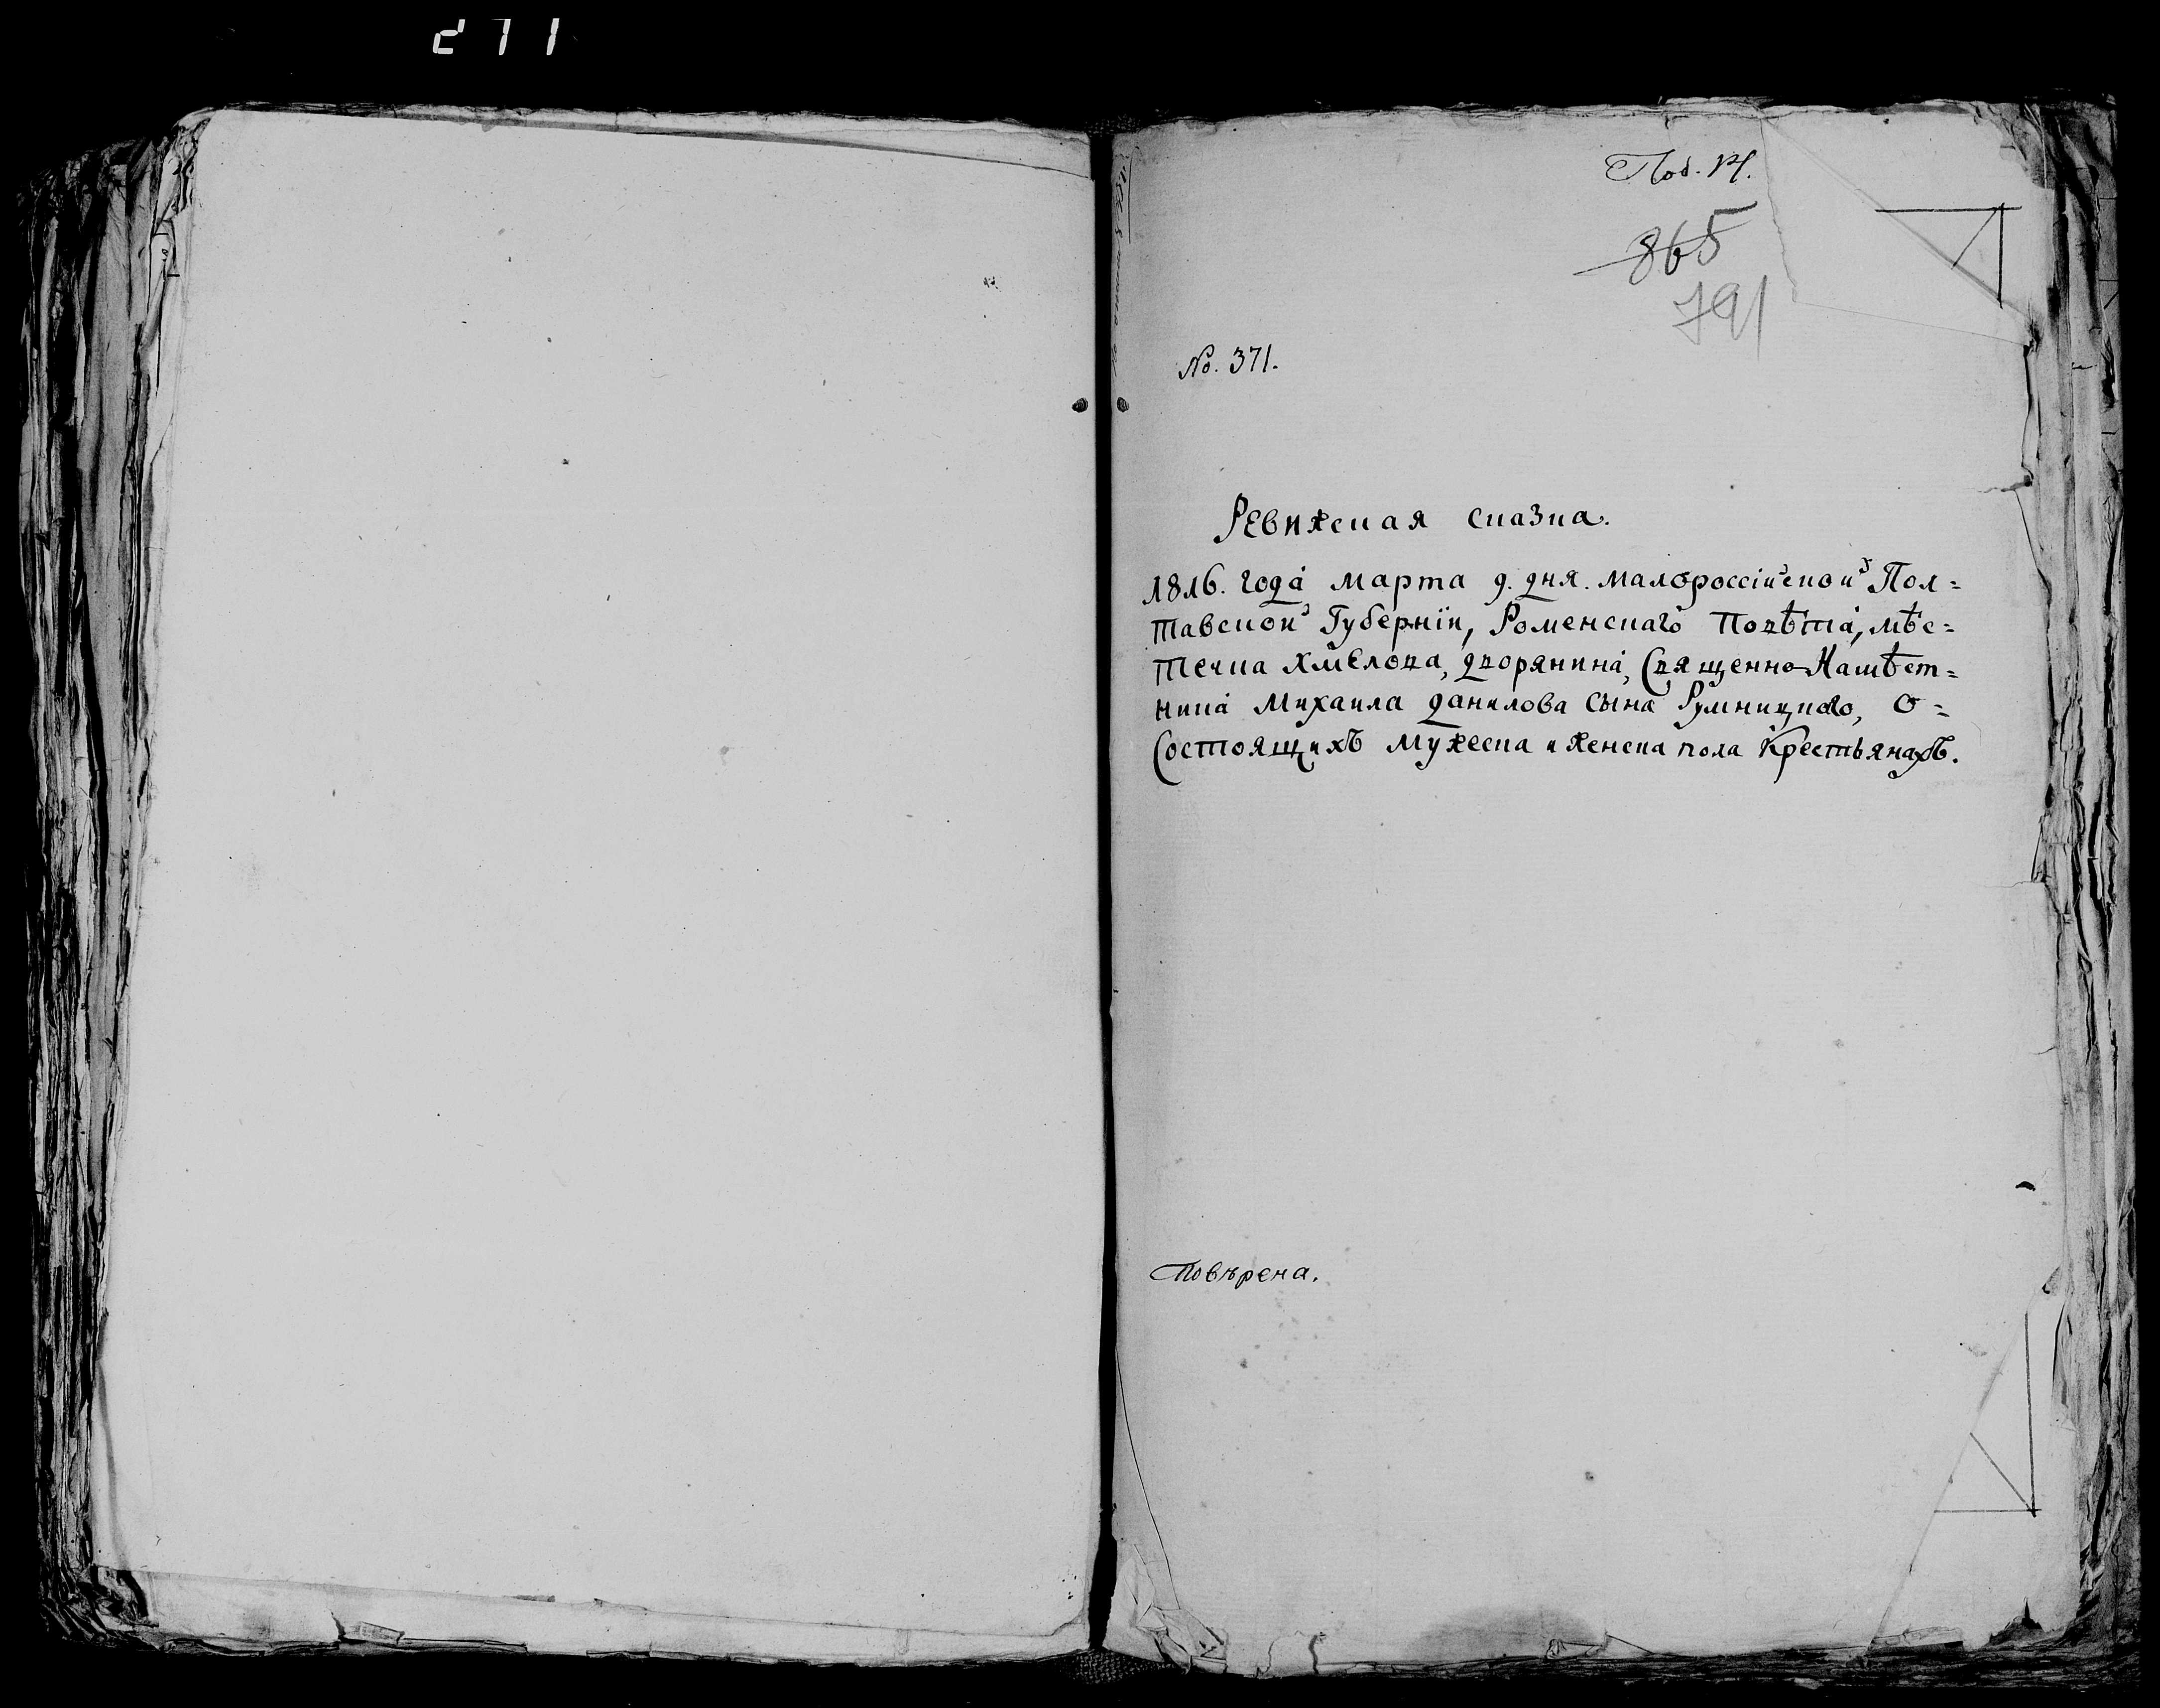 271
Под. М.
865
791
No. 371.
Ревижская сказка.
1816. года марта 9. дня. малороссійской Пол=
тавской Губерніи, Роменскаго Повѣта, мѣс=
течка Хмелова, дворянина, Священно Намѣст=
ника Михаила Данилова сына Румницкаго, О=
Состоящихъ мужеска и женска пола Крестьянахъ.
Повѣрена.